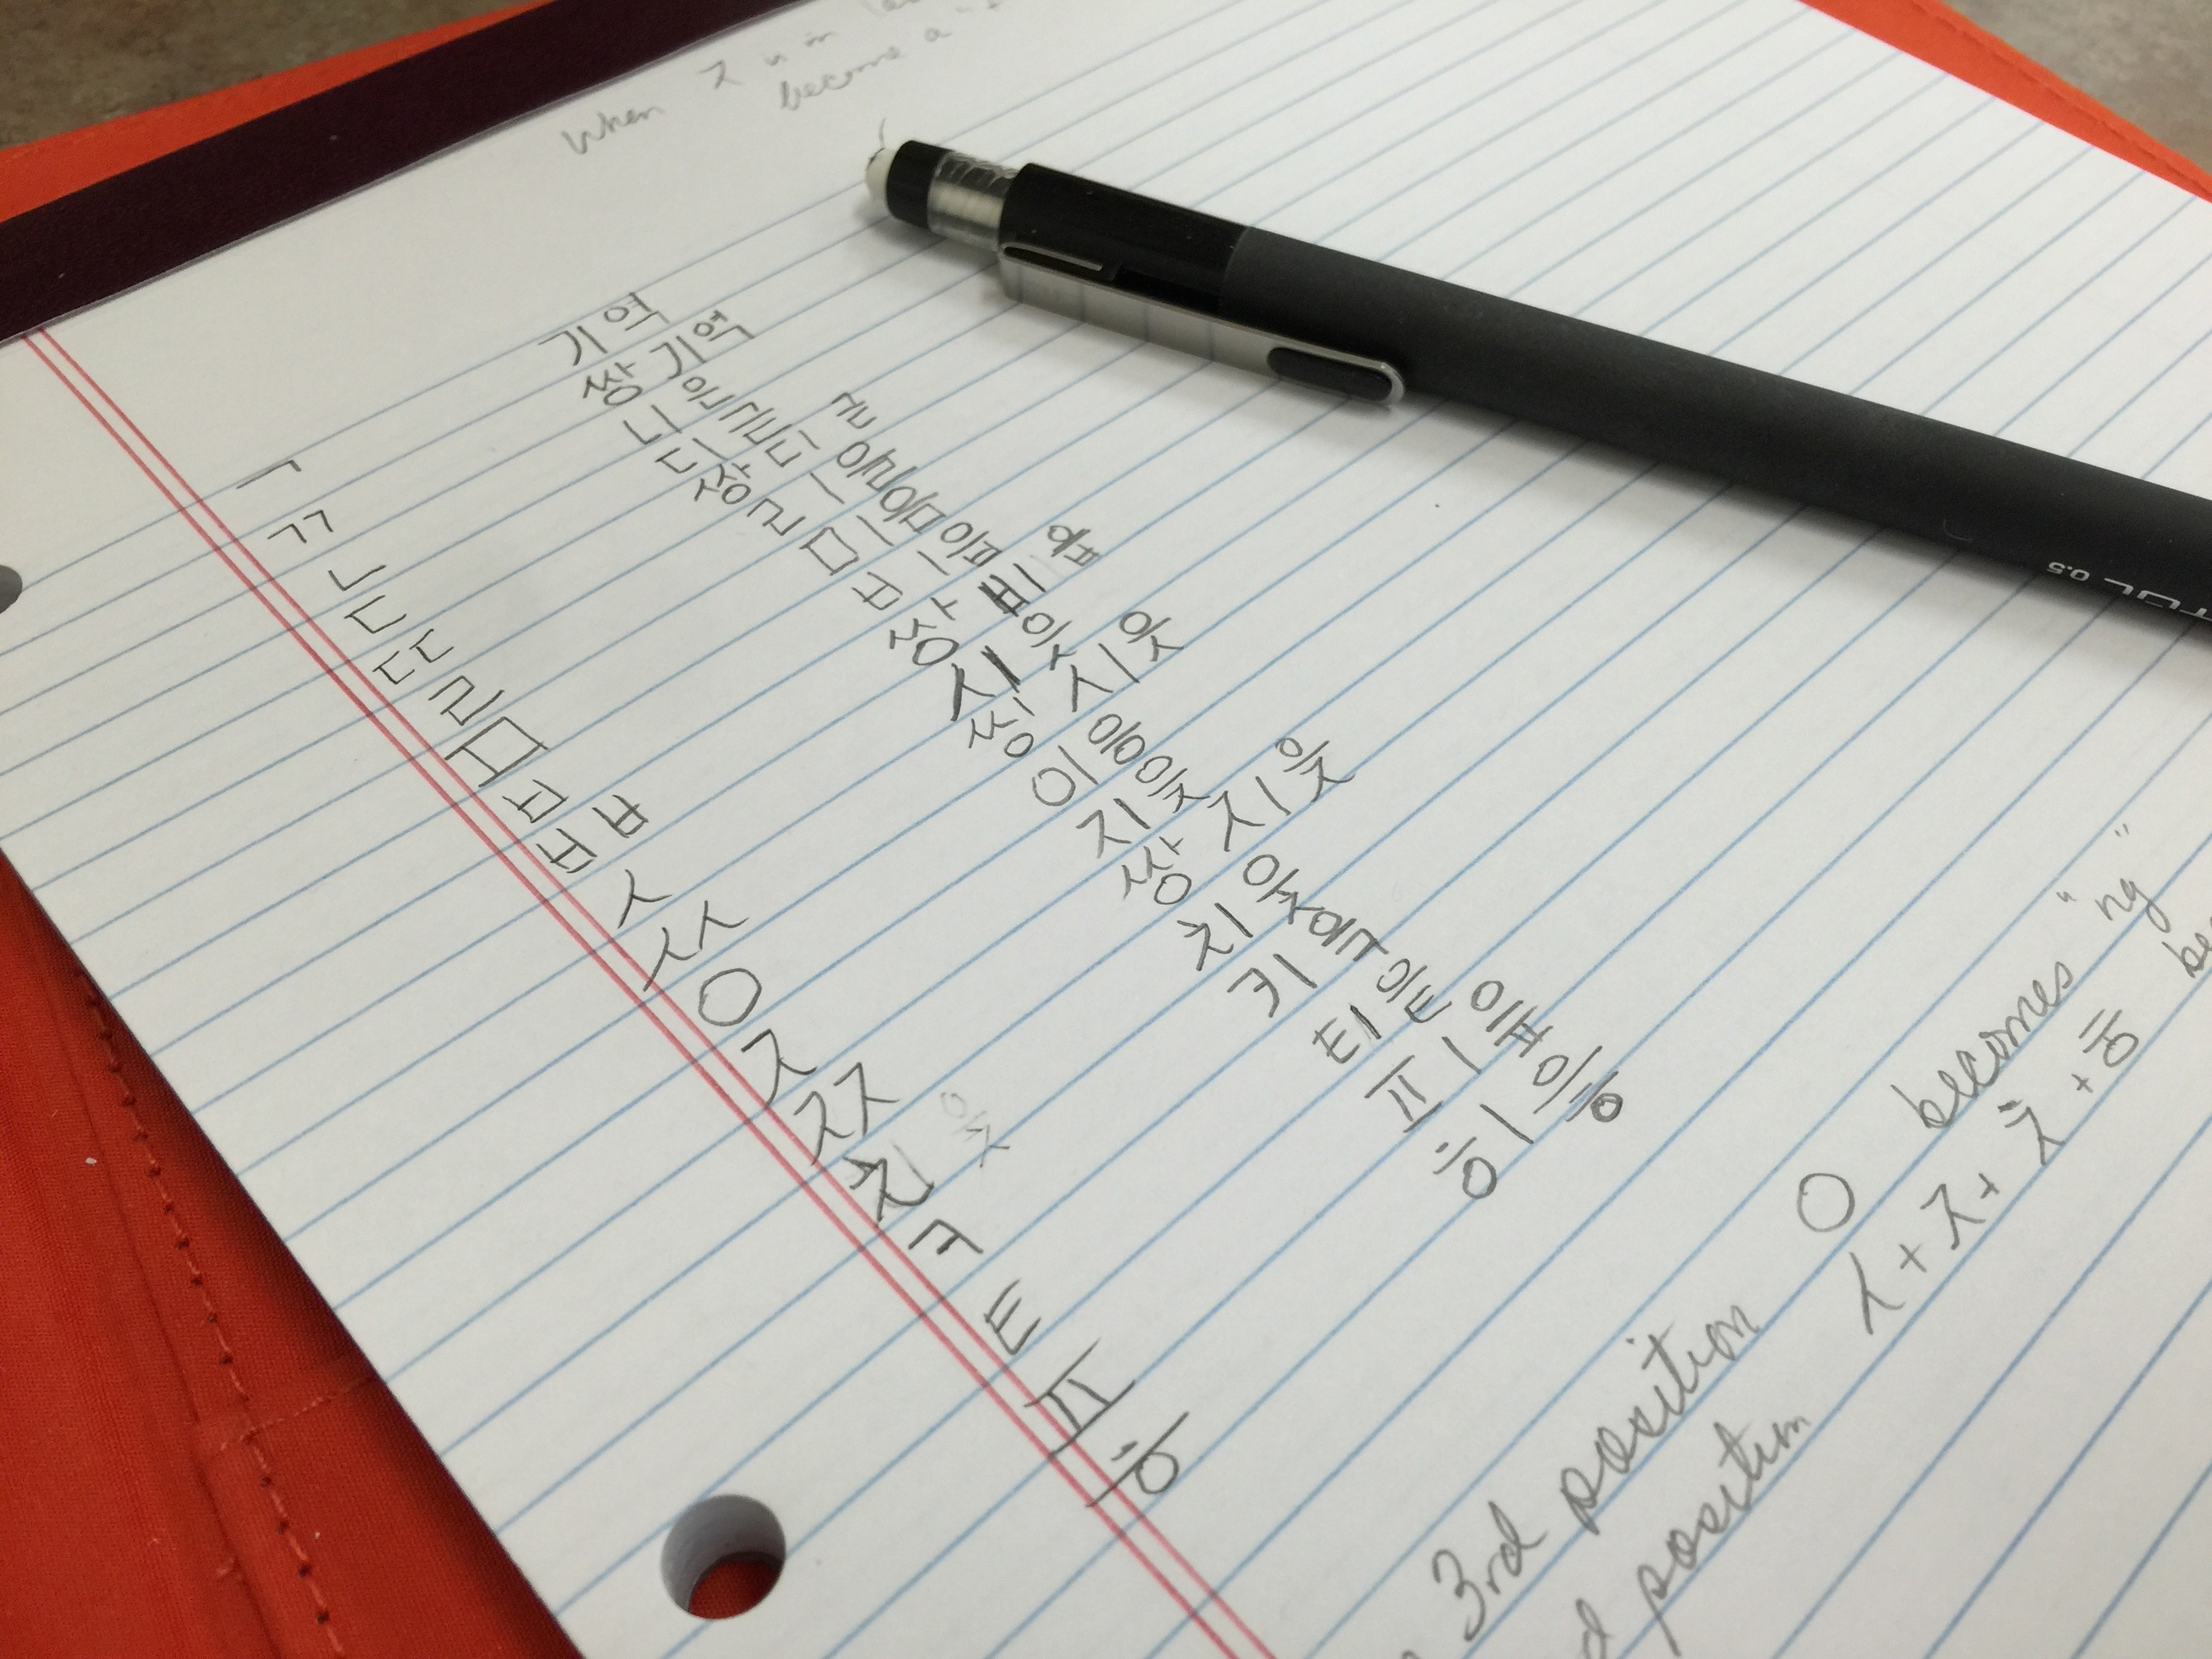 When ㅈ is in
become a
ㄱ 기역
ㄲ 쌍기역
ㄴ 니은
ㄷ 디귿
ㄸ 상디귿
ㄹ 리을
ㅁ 미음
ㅂ 비읍
ㅃ 쌍비읍
ㅅ 시옷
ㅆ 씽시옷
ㅇ 이응
ㅈ 지읒
ㅉ 쌍지읒
ㅊ 치읓
ㅋ 키읔
ㅌ 티읕
ㅍ 피읖
ㅎ 히읗
3rd position ㅇ becomes "ng"
position ㅅ+ㅈ+ㅊ+ㅎ
0.5